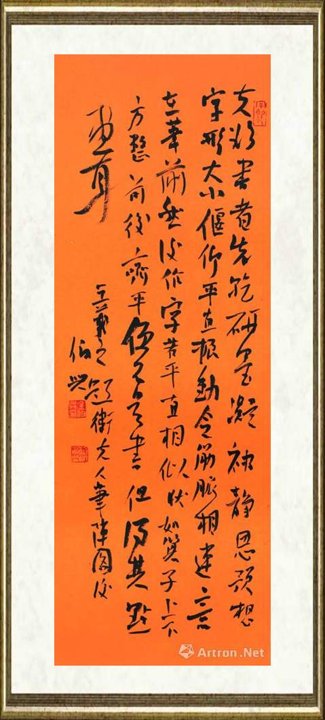 夫欲書者先乾研墨凝神靜思預想
字形大小偃仰平直振動令筋脈相連意
在筆前然後作字若平直相似狀如算子上下
方整前後齊平便不是書但得其點
畫耳
王羲之題衛夫人筆陣圖後
Artron.Net